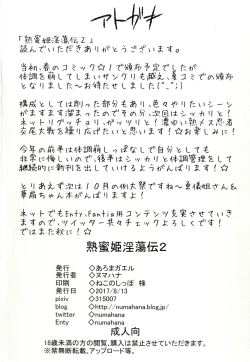 アトガキ
「熟蜜姫淫蕩伝2」
読んでいただきありがとうございます。
当初、春のコミック☆1で頒布予定でしたが
体調を崩してしまいサンクリも越え、夏コミでの頒布
となりました~お待たせしました(^_^;)
構成としては削った部分もあり、色々やりたいシーン
がますます溜まったのでその分、次回はシッカリと!
ネットリグッチョリ、ガッツリと!濃ゆい熟メス忍者
交尾大戦を繰り広げたいと思います!☆お楽しみに!
今年の前半は体調崩しっぱなしで自分としても
非常に悔しいので、後半はシッカリと体調管理をして
継続的に新刊を出していけるようがんばります!☆
とりあえず次は10月の例大祭ですね~
がんばります!☆
ネットでもEnty、Fantia用コンテンツ充実させていき
ますので、ツイッター共々チェックよろしくです!
ではまた秋に!☆
熟蜜姫淫蕩伝2
発行 ◇あろまガエル
発行者 ◇ヌマハナ
印刷 ◇ねこのしっぽ 様
発行日 ◇2017/8/13
pixiv ◇315007
blog ◇http://numahana.blog.jp/
twitter ◇numahana
Enty ◇numahana
成人向
18歳未満の方の閲覧、購入は禁止させていただきます。
※禁無断転載、アップロード等。